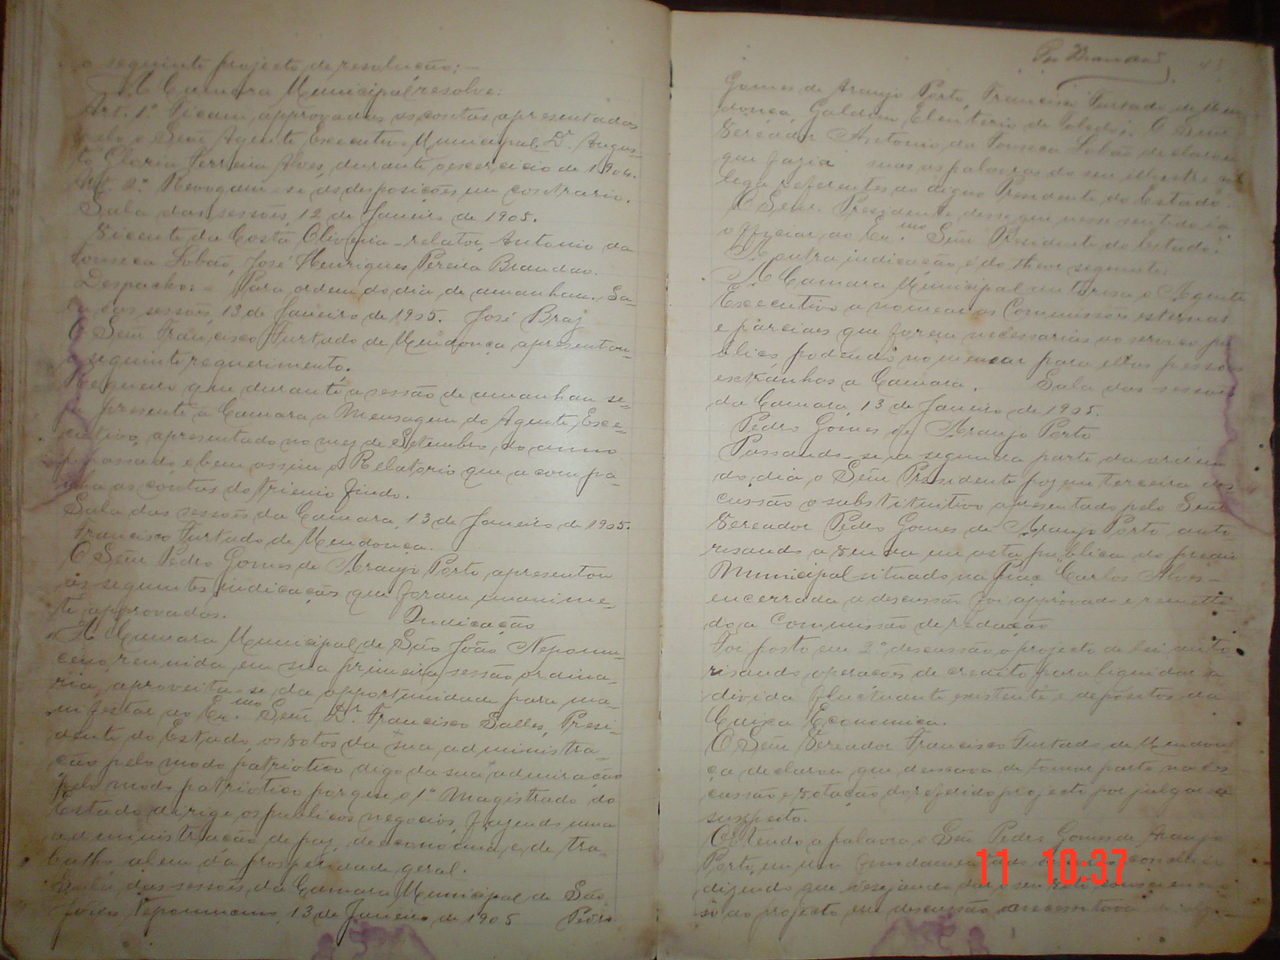 o seguinte projecto de resolução:-
A Camara Municipal resolve:
Art. 1º Ficam approvadas as contas apresentadas
pelo Senr Agente Executivo Municipal, Dr. Augus-
to Gloria Ferreira Alves, durante o exercicio de 1904.
Art. 2º Revogam-se as desposições em contrario.
Sala das sessões, 12 de Janeiro de 1905.
Vicente da Costa Oliveira - relator, Antonio da
Fonseca Lobão, José Henriques Pereira Brandão.
Despacho:- Para ordem do dia de amanhan. Sa-
la das sessões, 13 de Janeiro de 1905. José Braz
O Senr Francisco Furtado de Mendonça apresentou
o seguinte requerimento.
Requeiro que durante a sessão de amanhan se-
ja presente a Camara a Mensagem do Agente Exe-
cutivo, apresentado no mez de Setembro, do anno
passado, e bem assim o Relatorio que acompa-
nha as contas do trienio findo.
Sala das sessões da Camara, 13 de Janeiro de 1905.
Francisco Furtado de Mendonça.
O Senr Pedro Gomes de Araujo Porto apresentou
as seguintes indicações que foram unanime-
te approvadas. Indicação
A Camara Municipal de São João Nepomu-
ceno, reunida em sua primeira sessão ordina-
ria, aproveita-se da opportunidade para ma-
nifestar ao Exmo Senr Dr Francisco Salles, Presi-
dente do Estado, os votos da sua administra-
ção pelo modo patriotico digo da sua admiração
pelo modo patriotico porque o 1º Magistrado do
Estado dirige os publicos negocios, fazendo uma
administração de paz, de economia, e de tra-
balho além da prosperidade geral.
Sala das sessões da Camara Municipal de São
João Nepomuceno, 13 de Janeiro de 1905 Pedro
Gomes de Araujo Porto, Francisco Furtado de Men-
donça, Galdino Eleuterio de Toledo; O Senr
Vereador Antonio da Fonseca Lobão declarou
que fazia suas as palavras do seu illustre col-
lega referentes ao digno Presidente do Estado.
O Senr. Presidente disse que nesse sentido ia
officiar ao Exmo Senr Presidente do Estado.
A outra indicação é do theor seguinte:
A Camara Municipal autorisa o Agente
Executivo a nomear as Commissões externas
e parciaes que forem necessarias ao serviço pu-
blico podendo nomear para ellas pessoas
extranhas a Camara. Sala das sessões
da Camara, 13 de Janeiro de 1905.
Pedro Gomes de Araujo Porto
Passando-se a segunda parte da ordem
do dia, o Senr Presidente poz em terceira dis-
cussão o substitutivo apresentado pelo Senr
Vereador Pedro Gomes de Araujo Porto auto-
risando a venda em asta publica do predio
Municipal situado na Praça "Carlos Alves-
encerrada a discussão foi approvado e remetti-
do a Commissão de redacção
Foi posto em 2ª discussão o projecto de lei auto-
risando operações de credito para liquidar a
divida fluctuante existente e depositos da
Caixa Economica.
O Senr Vereador Francisco Furtado de Mendon-
ça declarou que deixava de tomar parte na dis-
cussão e votação do refedido projecto por julgar-se
suspeito.
Obtendo a palavra o Senr Pedro Gomes de Araujo
Porto, em um fundamentado
dizendo que desejando dar o seu voto
so ao projecto em discussão necessitava
11 10:37